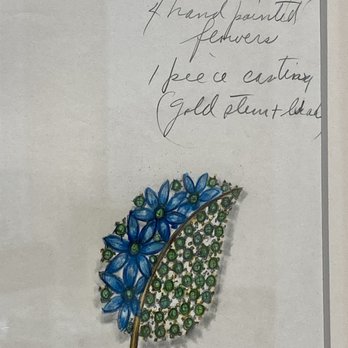 4 hand painted
flowers
1 piece casting
(gold stem + leaf)